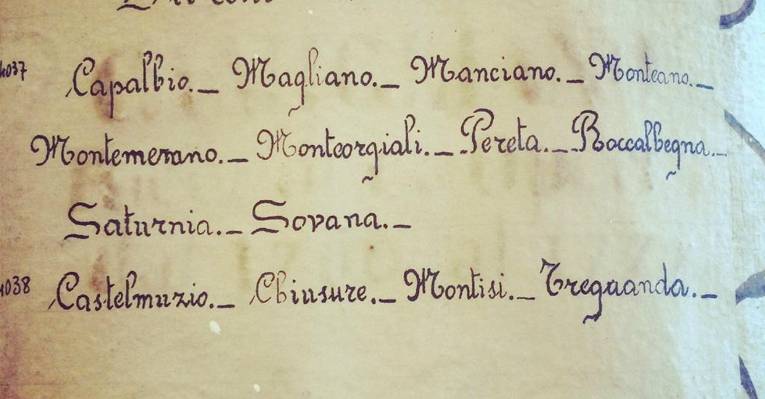 4037 Capalbio._ Magliano._ Manciano._ Monteano._
Montemerano._ Monteorgiali._ Pereta._ Roccalbegna._
Saturnia._ Sovana._
4038 Castelmuzio._ Chiusure._ Montisi._ Trequanda._